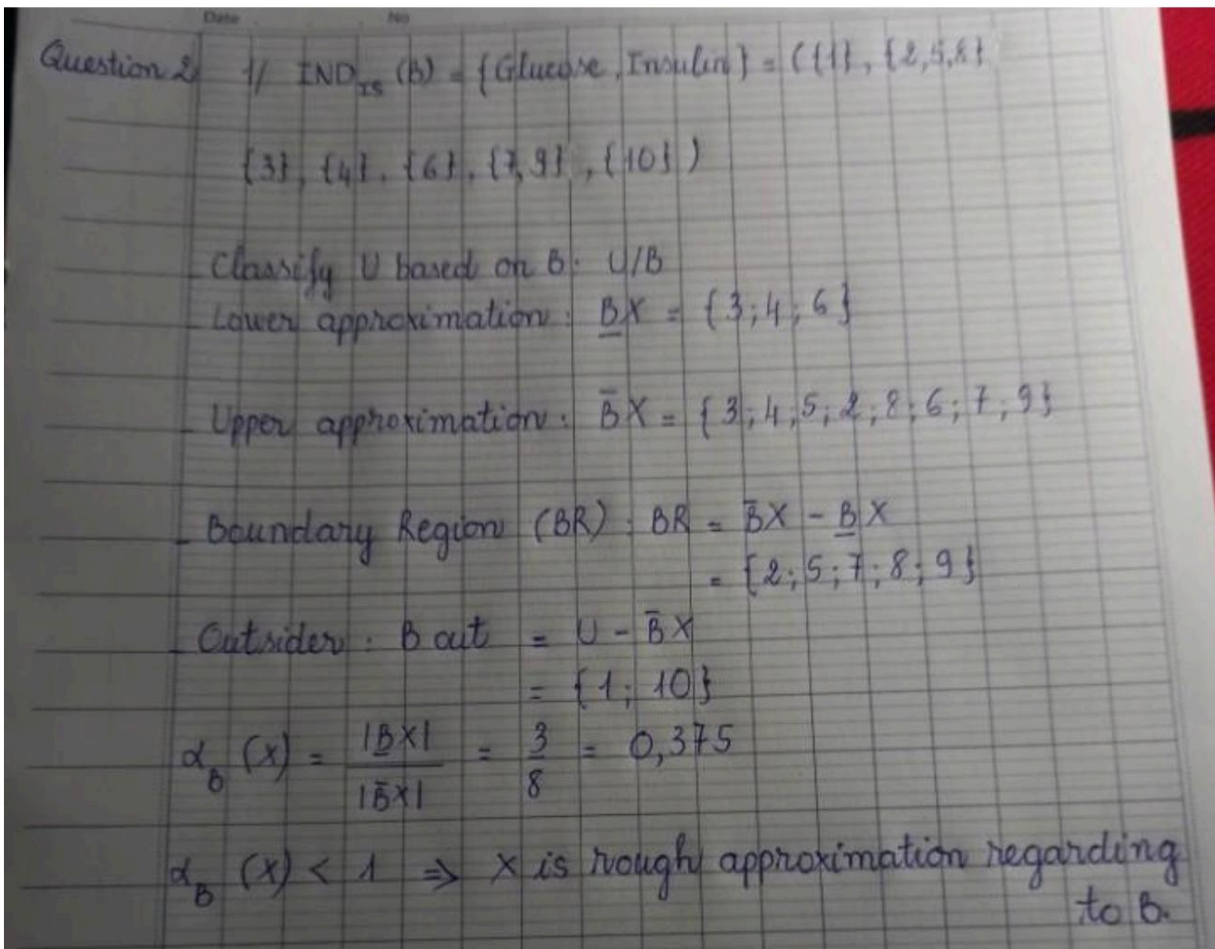 Date No
Question 2) 1/ IND_IS (B) = {Glucose, Insulin} = ({1}, {2,5,8}
{3}, {4}, {6}, {7,9}, {10})
Classify U based on B: U/B
- Lower approximation: B̲X = {3;4;6}
- Upper approximation: B̄X = {3;4;5;2;8;6;7;9}
- Boundary Region (BR): BR = B̄X - B̲X
= {2;5;7;8;9}
- Outsider: B out = U - B̄X
= {1; 10}
α_B (X) = |B̲X| / |B̄X| = 3/8 = 0,375
α_B (X) < 1 ⇒ X is rough approximation regarding
to B.